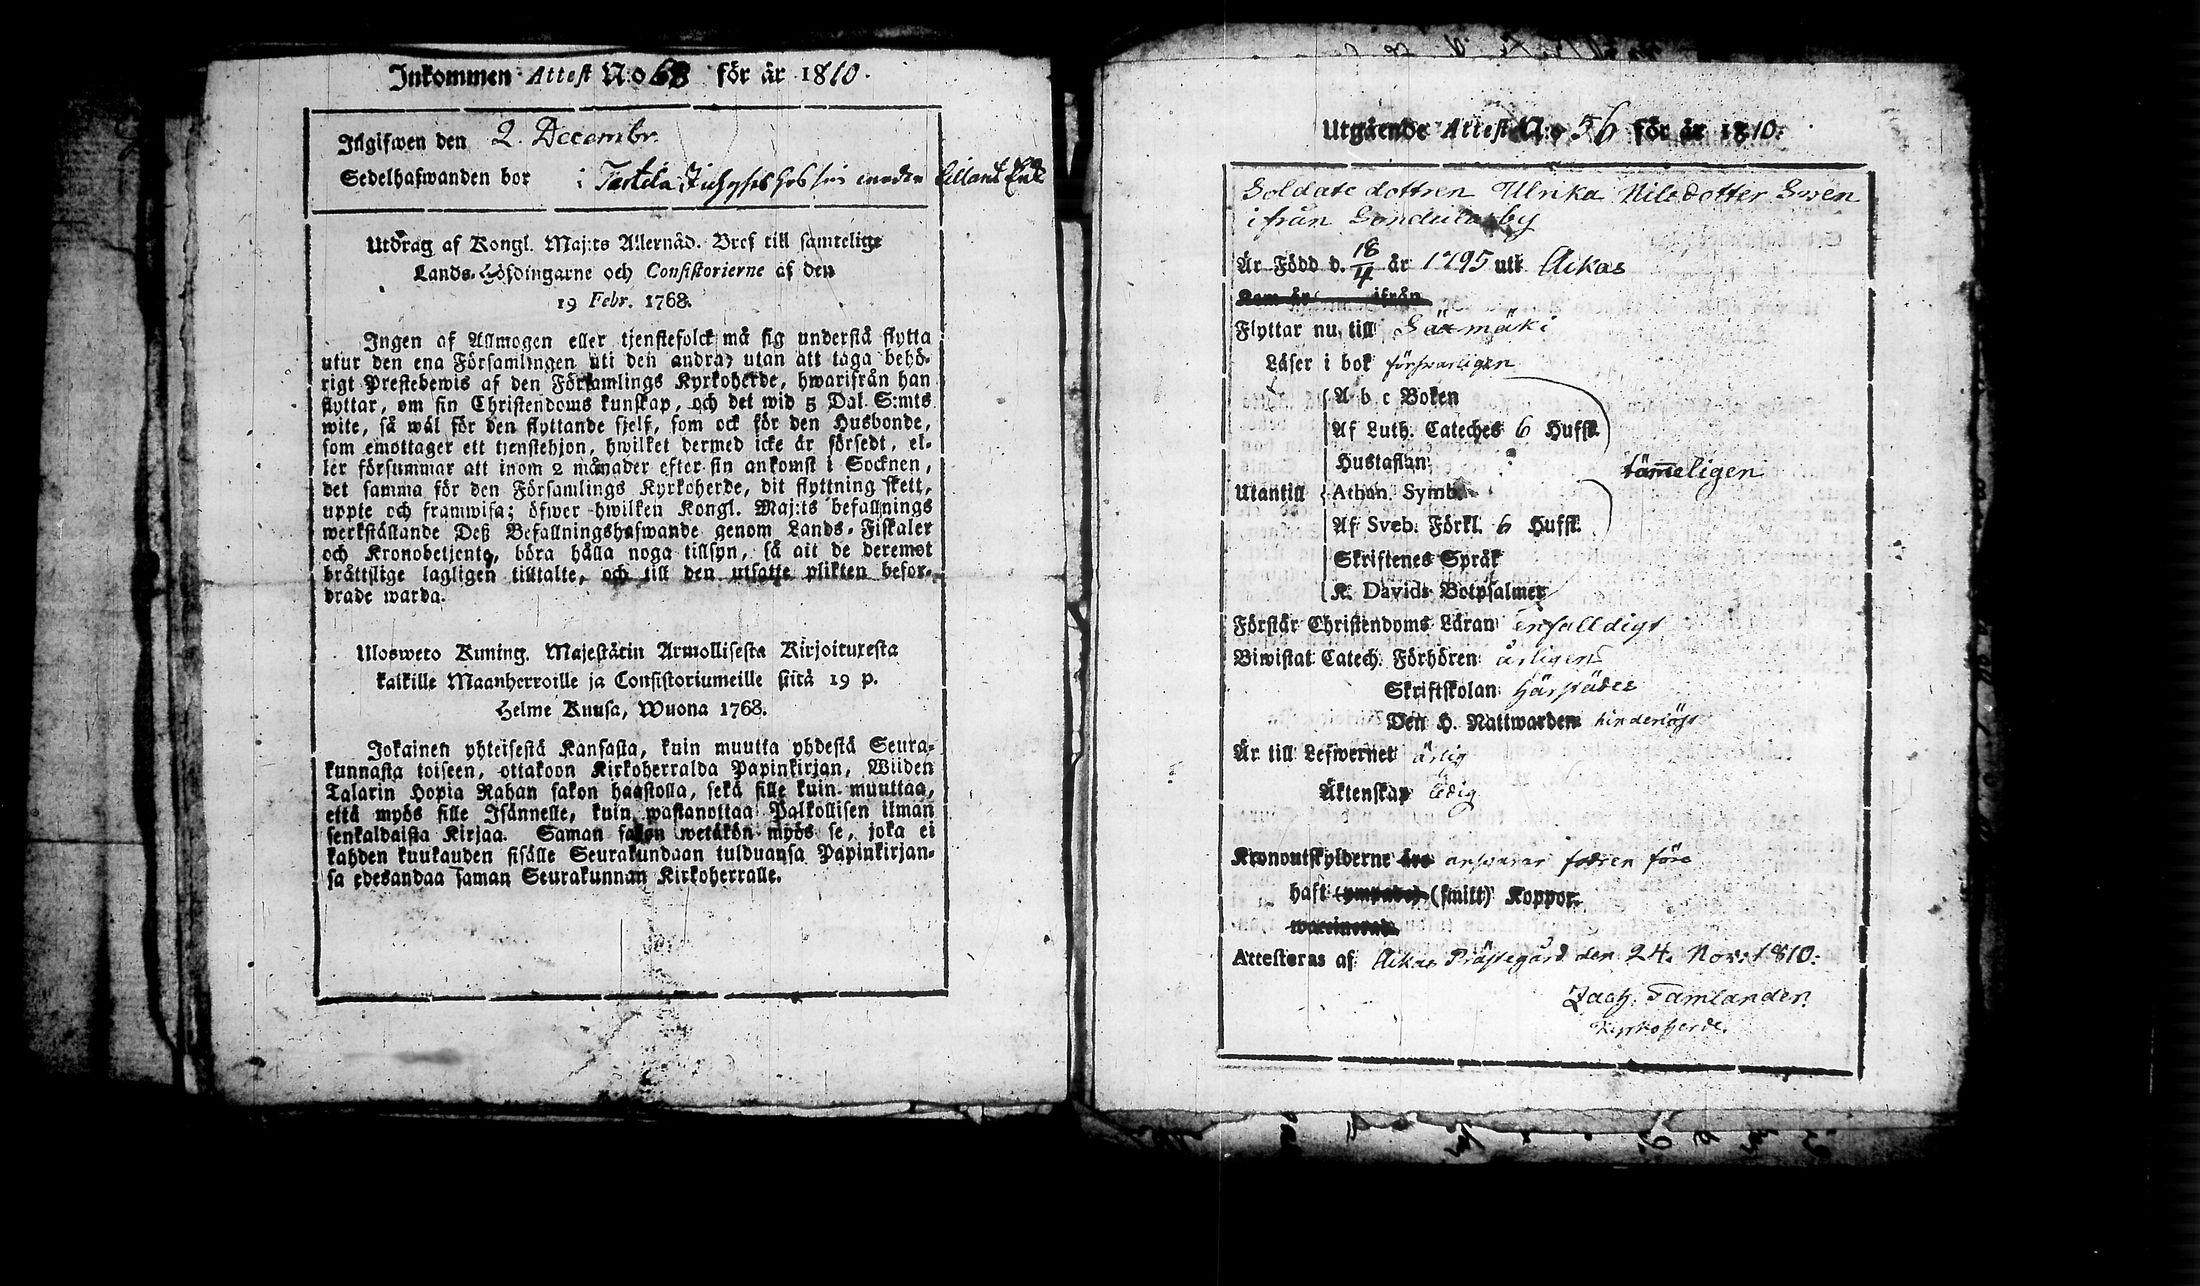 Inkommen Attest No 68 för år 1810.
Ingifwen den 2. Decembr.
Sedelhafwanden bor i hos sin
Utdrag af Kongl. Maj:ts Allernåd. Bref till samtelige
Lands-Höfdingarne och Consistorierne af den
19 Febr. 1768.
Ingen af Allmogen eller tjenstefolck må sig understå flytta
utur den ena Församlingen uti den andra, utan att taga behö-
rigt Prestebewis af den Församlings Kyrkoherde, hwarifrån han
flyttar, om sin Christendoms kunskap, och det wid 5 Dal. S:mts
wite, så wäl för den flyttande sjelf, som ock för den Husbonde,
som emottager ett tjenstehjon, hwilket dermed icke är försedt, el-
ler försummar att inom 2 månader efter sin ankomst i Socknen,
det samma för den Församlings Kyrkoherde, dit flyttning skett,
uppte och framwisa; öfwer hwilken Kongl. Maj:ts befallnings
werkställande Deß Befallningshafwande genom Lands-Fiskaler
och Kronobetjente, böra hålla noga tillsyn, så att de deremot
bråttslige lagligen tilltalte, och till den utsatte plikten befor-
drade warda.
Ulosweto Kuning. Majestätin Armollisesta Kirjoituxesta
kaikille Maanherroille ja Consistoriumeille siitä 19 p.
Helme Kuusa, Wuona 1768.
Jokainen yhteisestä Kansasta, kuin muutta yhdestä Seura-
kunnasta toiseen, ottakoon Kirkoherralda Papinkirjan, Wiiden
Talarin Hopia Rahan sakon haastolla, sekä sille kuin muuttaa,
että myös sille Isännelle, kuin wastanottaa Palkollisen ilman
senkaldaista Kirjaa. Saman sakon wetäkön myös se, joka ei
kahden kuukauden sisälle Seurakundaan tulduansa Papinkirjan-
sa edesandaa saman Seurakunnan Kirkoherralle.
Utgående Attest No 56 för år 1810.
Soldate dottren Ulrika Nilsdotter Swen
ifrån by
Är Född d. 18/4 år 1795 uti Ackas
Kom år ifrån
Flyttar nu till Säxmäki
Läser i bok försvarligen
A b c Boken
Af Luth. Cateches 6 Hufst.
Hustaflan
Utantill Athan. Symb. tämmeligen
Af Sveb. Förkl. 6 Hufst.
Skriftenes Språk
K. Davids Botpsalmer
Förstår Christendoms Läran enfalldigt
Biwistat Catech. Förhören årligen
Skriftskolan härstädes
Den H. Nattwarden
Är till Lefwernet ärlig
Äktenskap ledig
Kronoutskylderne äro ansvarar fadren före
haft (smitt) Koppor.
Attesteras af Ackas Prästegård den 24. Nov. 1810.
Zach. Tamlander.
Kyrkoherde.